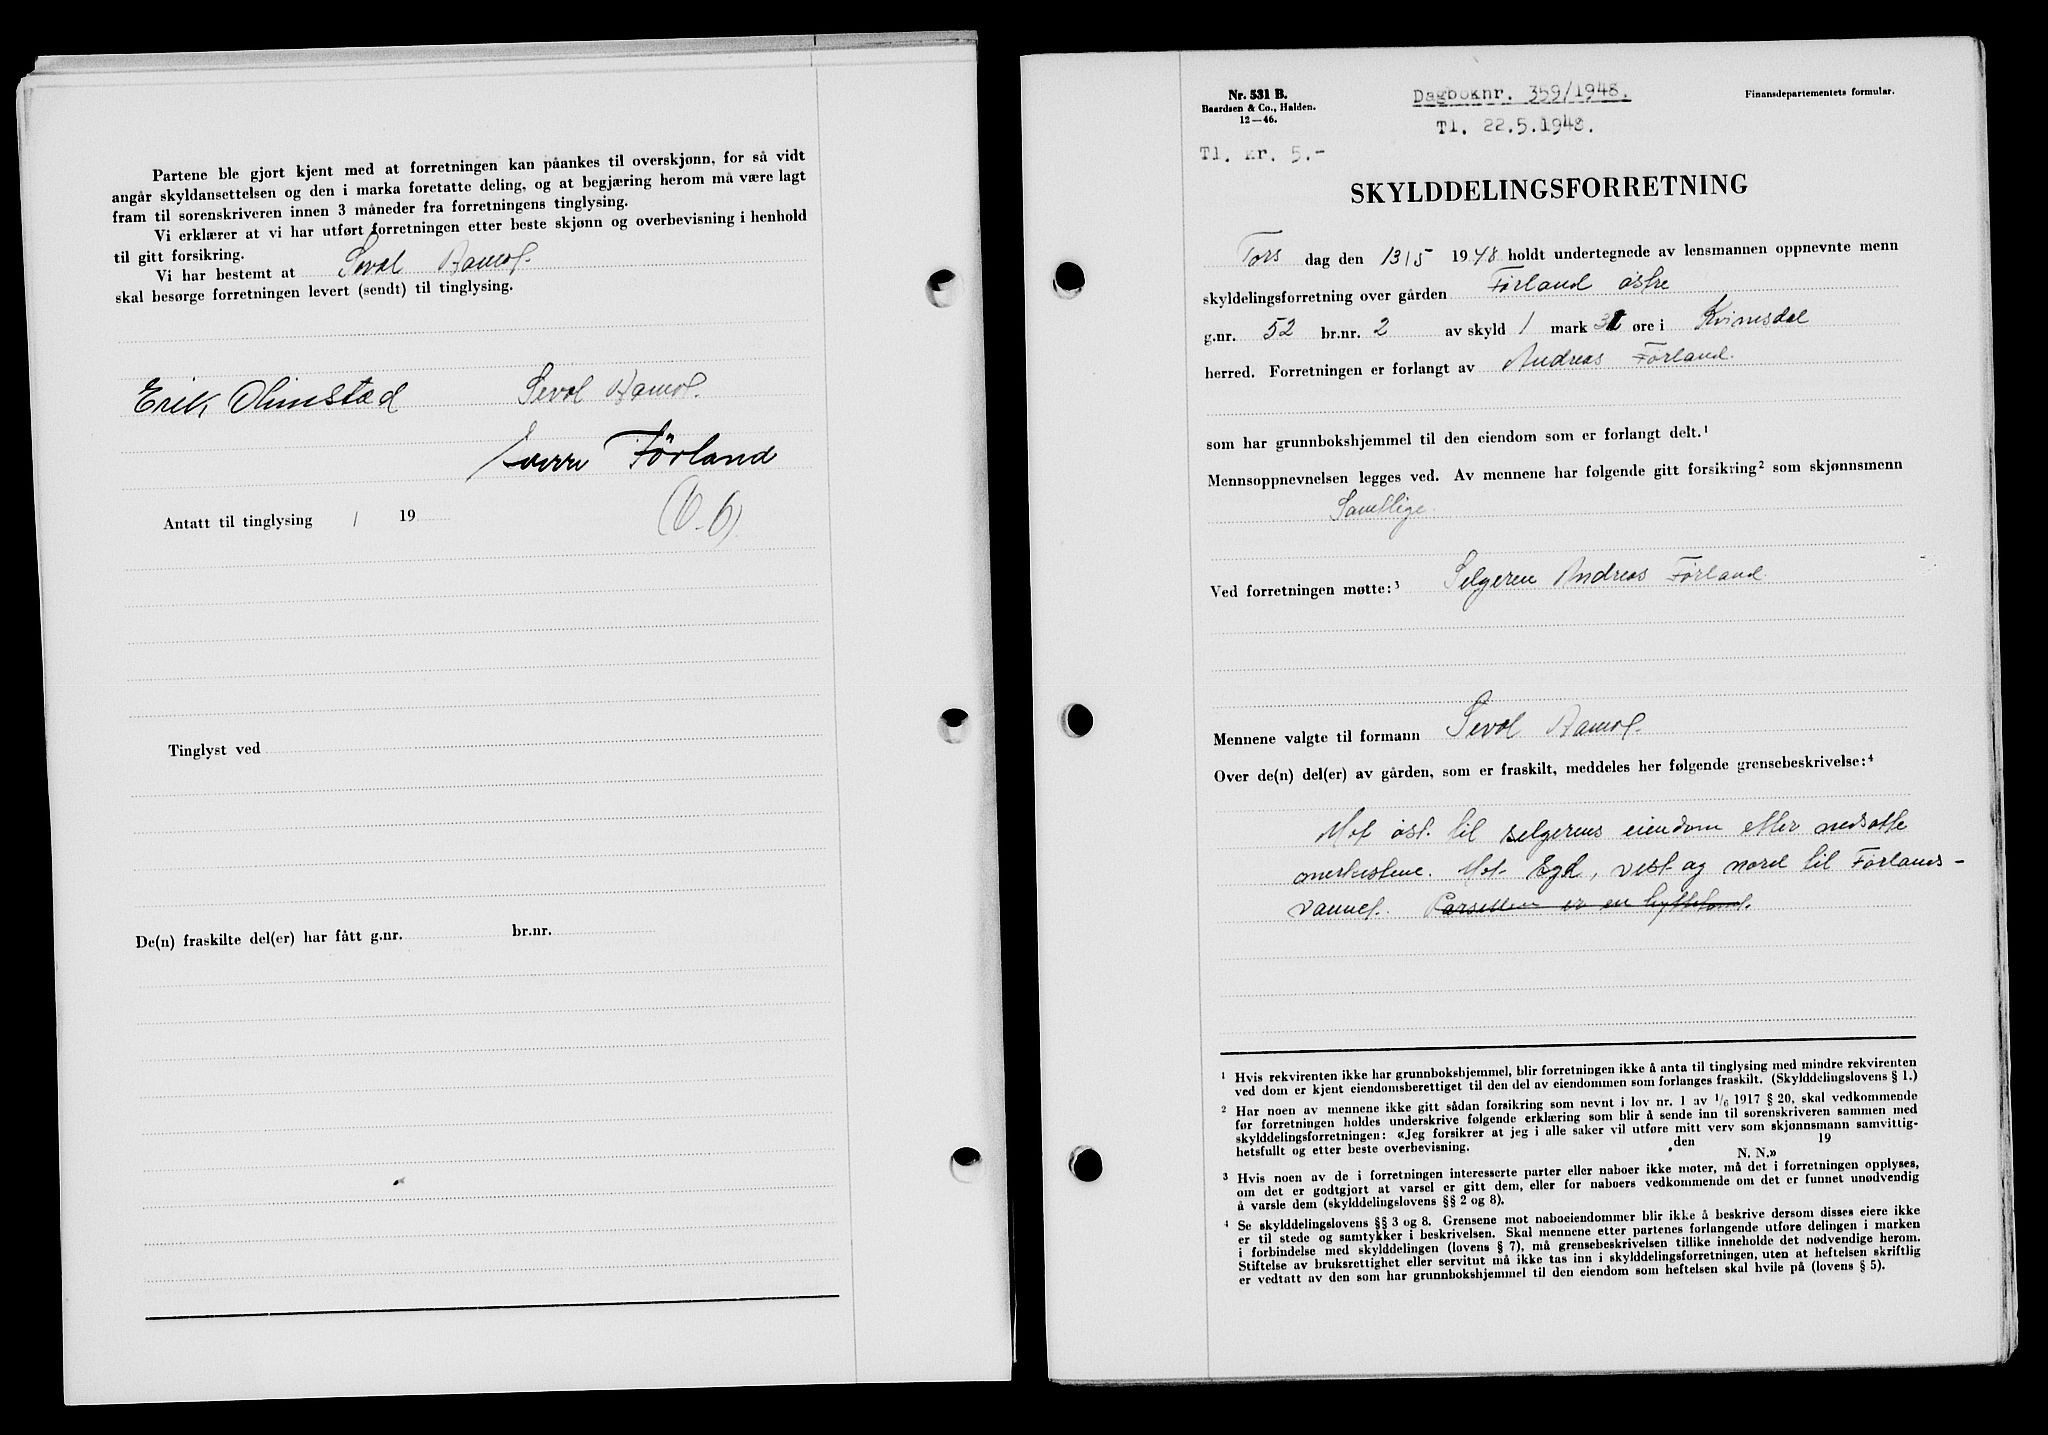 Partene ble gjort kjent med at forretningen kan påankes til overskjønn, for så vidt
angår skyldansettelsen og den i marka foretatte deling, og at begjæring herom må være lagt
fram til sorenskriveren innen 3 måneder fra forretningens tinglysing.
Vi erklærer at vi har utført forretningen etter beste skjønn og overbevisning i henhold
til gitt forsikring.
Vi har bestemt at Seval
skal besørge forretningen levert (sendt) til tinglysing.
Erik Olimstad Seval
Sverre Førland
Antatt til tinglysing / 19
Tinglyst ved
De(n) fraskilte del(er) har fått g.nr. br.nr.
Nr. 531 B.
Baardsen & Co., Halden.
12—46.
Dagboknr. 359/1948.
Tl. 22.5.1948.
Finansdepartementets formular.
Tl. kr. 5.-
SKYLDDELINGSFORRETNING
Tors dag den 13/5 1948 holdt undertegnede av lensmannen oppnevnte menn
skyldelingsforretning over gården Førland østre
g.nr. 52 br.nr. 2 av skyld 1 mark øre i Kvinesdal
herred. Forretningen er forlangt av Andreas Førland.
som har grunnbokshjemmel til den eiendom som er forlangt delt.¹
Mennsoppnevnelsen legges ved. Av mennene har følgende gitt forsikring² som skjønnsmenn
Samtlige.
Ved forretningen møtte:³ Selgeren Andreas Førland.
Mennene valgte til formann Seval
Over de(n) del(er) av gården, som er fraskilt, meddeles her følgende grensebeskrivelse:⁴
Mot øst til selgerens eiendom etter nedsatte
merkestene. Mot syd, vest og nord til Førlands-
vannet. Parsellen er en hyttetomt.
¹ Hvis rekvirenten ikke har grunnbokshjemmel, blir forretningen ikke å anta til tinglysing med mindre rekvirenten
ved dom er kjent eiendomsberettiget til den del av eiendommen som forlanges fraskilt. (Skylddelingslovens § 1.)
² Har noen av mennene ikke gitt sådan forsikring som nevnt i lov nr. 1 av 1/6 1917 § 20, skal vedkommende
før forretningen holdes underskrive følgende erklæring som blir å sende inn til sorenskriveren sammen med
skylddelingsforretningen: «Jeg forsikrer at jeg i alle saker vil utføre mitt verv som skjønnsmann samvittig-
hetsfullt og etter beste overbevisning. den 19
N. N.»
³ Hvis noen av de i forretningen interesserte parter eller naboer ikke møter, må det i forretningen opplyses,
om det er godtgjort at varsel er gitt dem, eller for naboers vedkommende om det er funnet unødvendig
å varsle dem (skylddelingslovens §§ 2 og 8).
⁴ Se skylddelingslovens §§ 3 og 8. Grensene mot naboeiendommer blir ikke å beskrive dersom disses eiere ikke
er til stede og samtykker i beskrivelsen. Skal mennene etter partenes forlangende utføre delingen i marken
i forbindelse med skylddelingen (lovens § 7), må grensebeskrivelsen tillike inneholde det nødvendige herom.
Stiftelse av bruksrettighet eller servitut må ikke tas inn i skylddelingsforretningen, uten at heftelsen skriftlig
er vedtatt av den som har grunnbokshjemmel til den eiendom som heftelsen skal hvile på (lovens § 5).